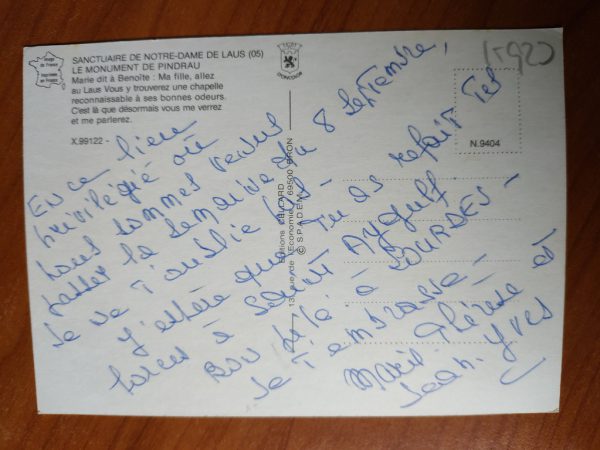 Image de France
Imprimée en France
SANCTUAIRE DE NOTRE-DAME DE LAUS (05)
LE MONUMENT DE PINDRAU
Marie dit à Benoîte : Ma fille, allez
au Laus Vous y trouverez une chapelle
reconnaissable à ses bonnes odeurs.
C'est là que désormais vous me verrez
et me parlerez.
X.99122 -
N.9404
Editions CELLARD
13, rue de l'Economie, 69500 BRON
© SPADEM
(592)
En ce lieu
privilégié où
nous sommes venus
passer la semaine du 8 septembre,
je ne t'oublie pas -
J'espère que tu as refait tes
forces à Saint Aygulf.
à LOURDES -
Je t'embrasse -
Marie Thérèse et
Jean-Yves